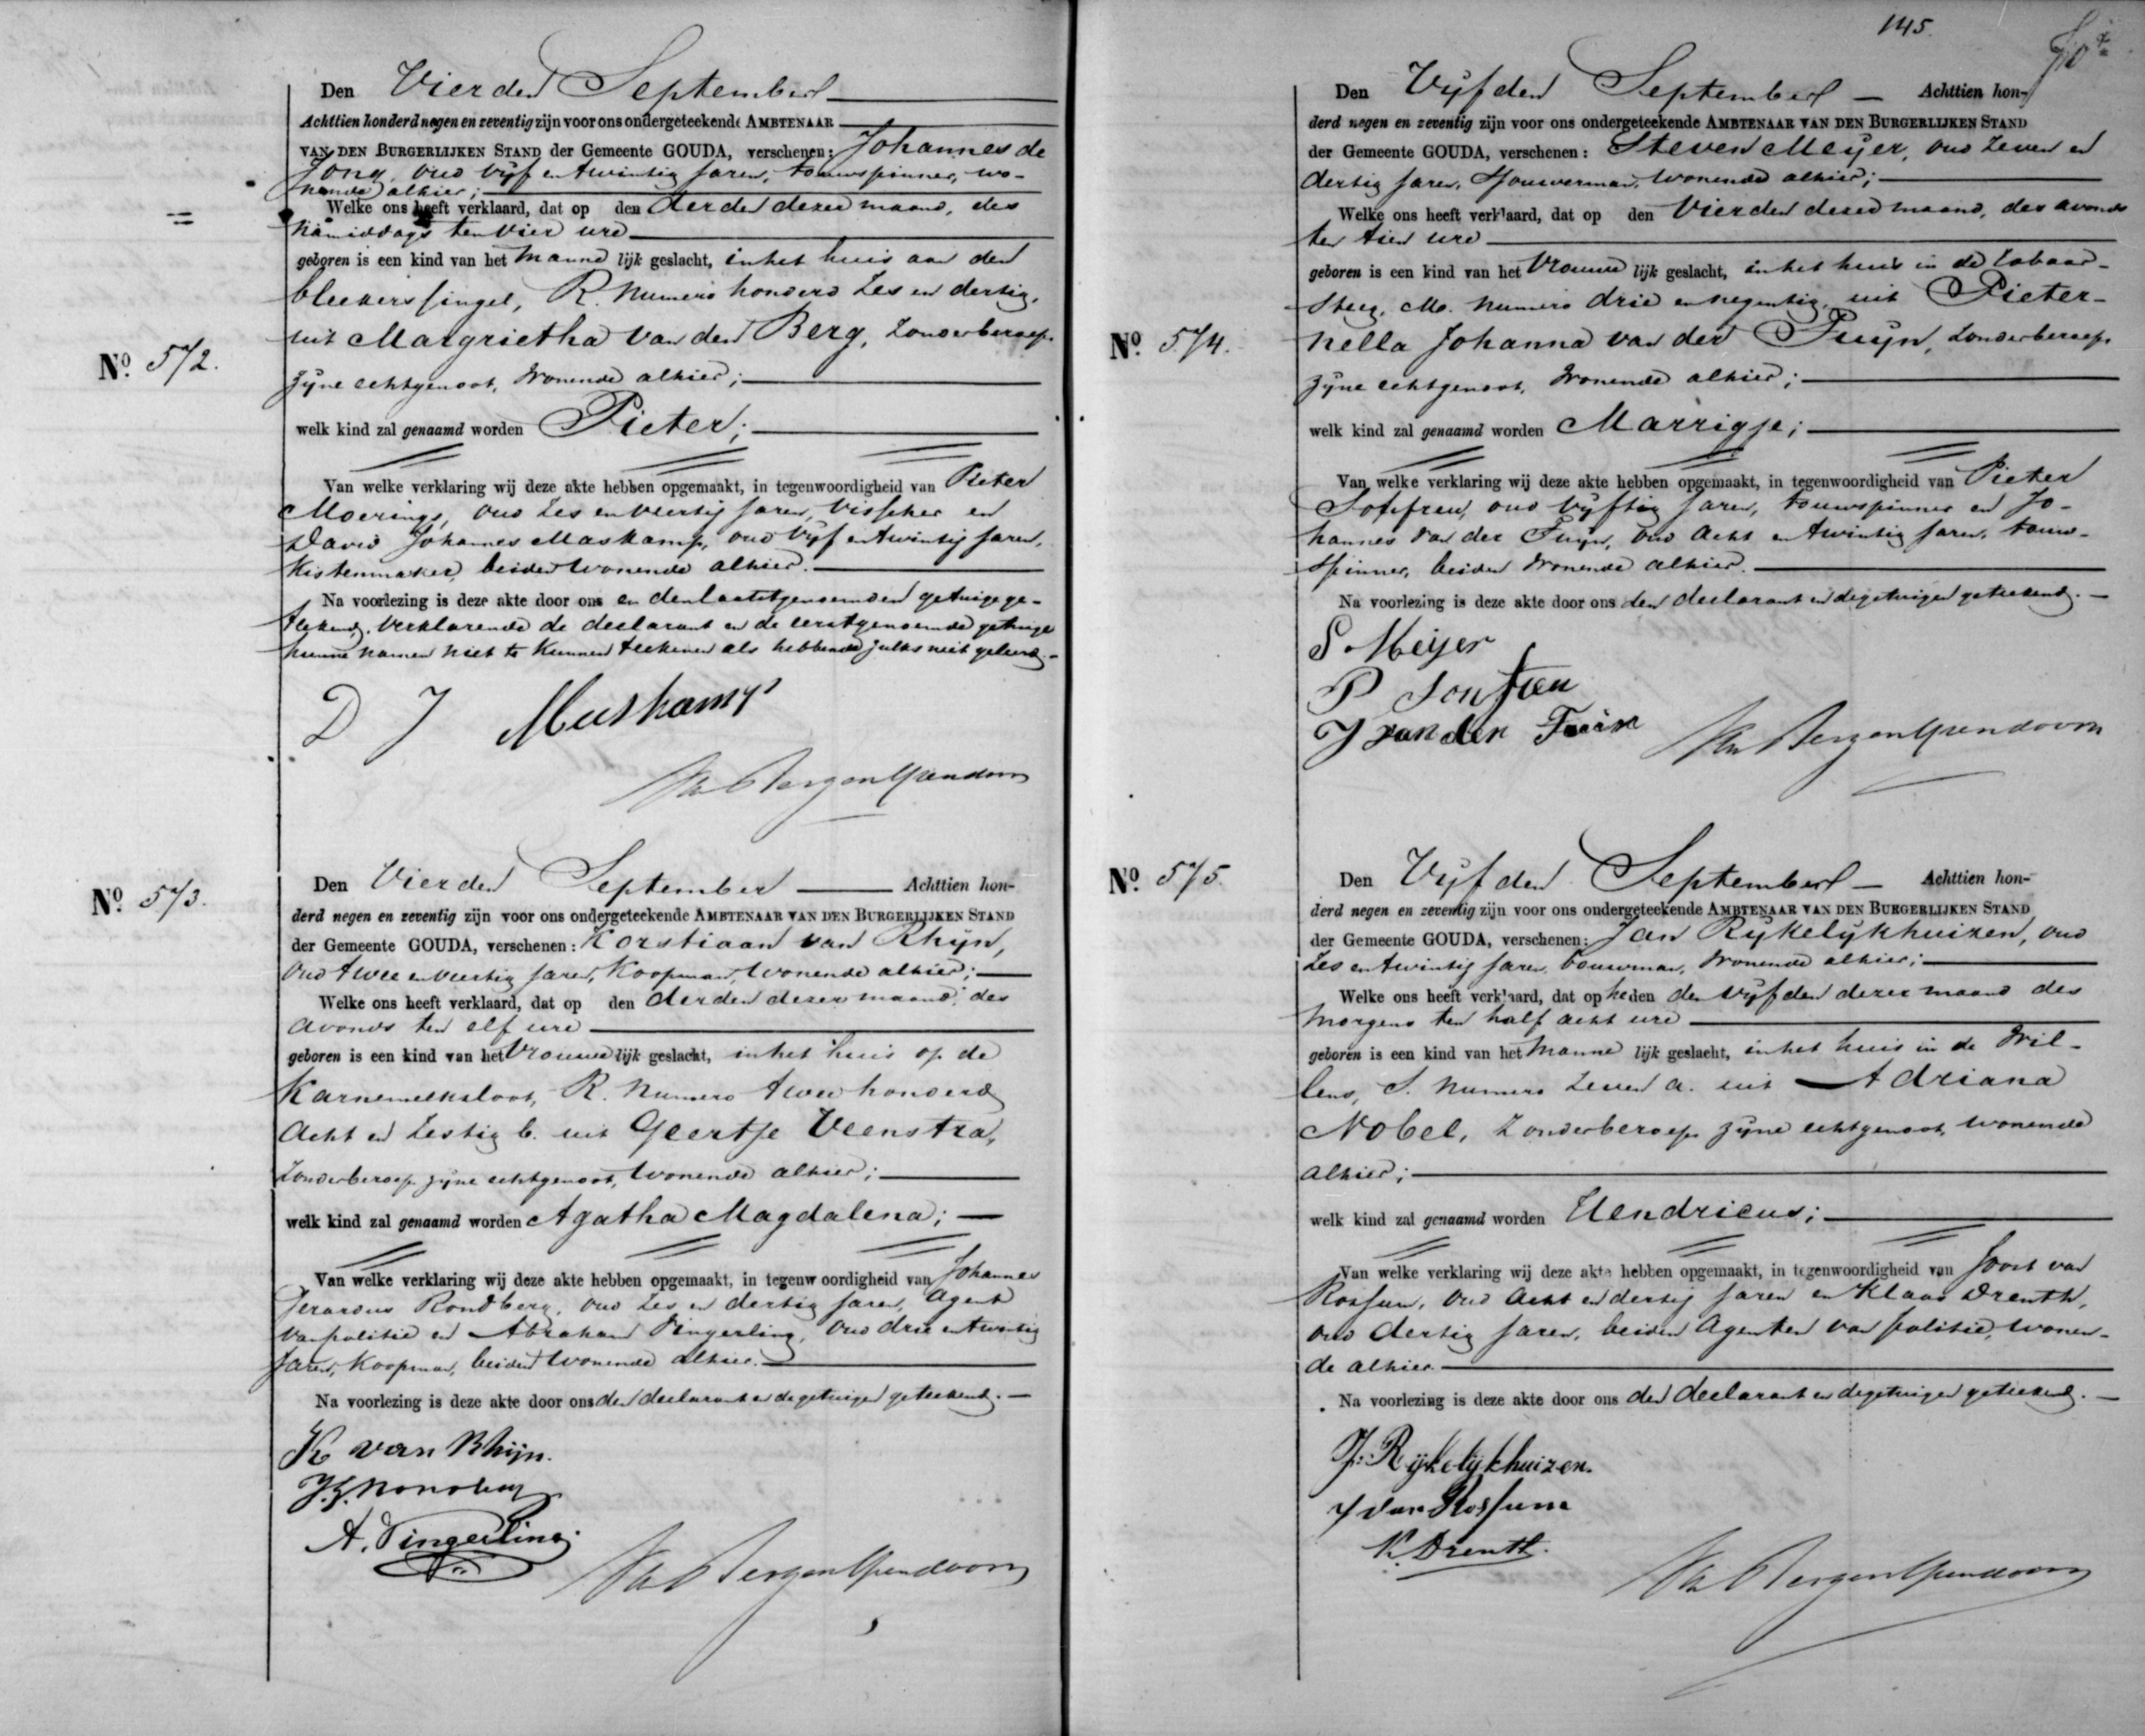 Den Vierden September
Achttien honderd negen en zeventig zijn voor ons ondergeteekende AMBTENAAR
VAN DEN BURGERLIJKEN STAND der Gemeente GOUDA, verschenen: Johannes de
Jong, oud vijf en twintig jaren, touwspinner, wo-
nende alhier;
Welke ons heeft verklaard, dat op den derden dezer maand, des
namiddags ten vier ure
geboren is een kind van het manne lijk geslacht, in het huis aan den
bleekerssingel, R. numero honderd zes en dertig,
No. 572. uit Margrietha van den Berg, zonder beroep
zijne echtgenoot, wonende alhier;
welk kind zal genaamd worden Pieter;
Van welke verklaring wij deze akte hebben opgemaakt, in tegenwoordigheid van Pieter
Moerings, oud zes en veertig jaren, visscher en
David Johannes Maskamp, oud vijf en twintig jaren,
kistenmaker, beiden wonende alhier.
Na voorlezing is deze akte door ons en den laatstgenoemden getuige ge-
teekend. Verklarende de declarant en de eerstgenoemde getuige
hunne namen niet te kunnen teekenen als hebbende zulks niet geleerd.
D J Maskamp
Van Bergen IJzendoorn
No. 573. Den Vierden September Achttien hon-
derd negen en zeventig zijn voor ons ondergeteekende AMBTENAAR VAN DEN BURGERLIJKEN STAND
der Gemeente GOUDA, verschenen: Korstiaan van Rhijn,
oud twee en veertig jaren, koopman, wonende alhier;
Welke ons heeft verklaard, dat op den derden dezer maand, des
avonds ten elf ure
geboren is een kind van het vrouwe lijk geslacht, in het huis op de
Karnemelksloot, R. numero twee honderd
acht en zestig b. uit Geertje Veenstra,
zonder beroep zijne echtgenoot, wonende alhier;
welk kind zal genaamd worden Agatha Magdalena;
Van welke verklaring wij deze akte hebben opgemaakt, in tegenwoordigheid van Johannes
Gerardus Rondberg, oud zes en dertig jaren, agent
van politie en Abraham Vingerling, oud drie en twintig
jaren, koopman, beiden wonende alhier.
Na voorlezing is deze akte door ons den declarant en de getuigen geteekend.
K van Rhijn.
A. Vingerling.
Van Bergen IJzendoorn
145.
Den Vijfden September Achttien hon-
derd negen en zeventig zijn voor ons ondergeteekende AMBTENAAR VAN DEN BURGERLIJKEN STAND
der Gemeente GOUDA, verschenen: Steven Meijer, oud zeven en
dertig jaren, sjouwerman, wonende alhier;
Welke ons heeft verklaard, dat op den vierden dezer maand, des avonds
ten tien ure
geboren is een kind van het vrouwe lijk geslacht, in het huis in de Taboor-
steeg, M. numero drie en negentig, uit Pieter-
No. 574. nella Johanna van der Fuijn, zonder beroep
zijne echtgenoot, wonende alhier;
welk kind zal genaamd worden Marrigje;
Van welke verklaring wij deze akte hebben opgemaakt, in tegenwoordigheid van Pieter
oud vijftig jaren, touwspinner en Jo-
hannes van der Fuijn, oud acht en twintig jaren, touw-
spinner, beiden wonende alhier.
Na voorlezing is deze akte door ons den declarant en de getuigen geteekend.
S. Meijer
P
J van der Fuin
Van Bergen IJzendoorn
No. 575. Den Vijfden September Achttien hon-
derd negen en zeventig zijn voor ons ondergeteekende AMBTENAAR VAN DEN BURGERLIJKEN STAND
der Gemeente GOUDA, verschenen: Jan Rijkelijkhuizen, oud
zes en twintig jaren, bouwman, wonende alhier;
Welke ons heeft verklaard, dat op heden den vijfden dezer maand des
morgens ten half acht ure
geboren is een kind van het manne lijk geslacht, in het huis in de Wil-
lens, S. numero zeven a. uit Adriana
Nobel, zonder beroep zijne echtgenoot, wonende
alhier;
welk kind zal genaamd worden Hendricus;
Van welke verklaring wij deze akte hebben opgemaakt, in tegenwoordigheid van Joost van
Rossum, oud acht en dertig jaren en Klaas Drenth,
oud dertig jaren, beiden agenten van politie, wonen-
de alhier.
Na voorlezing is deze akte door ons den declarant en de getuigen geteekend.
J: Rijkelijkhuizen.
J van Rossum
K. Drenth.
Van Bergen IJzendoorn